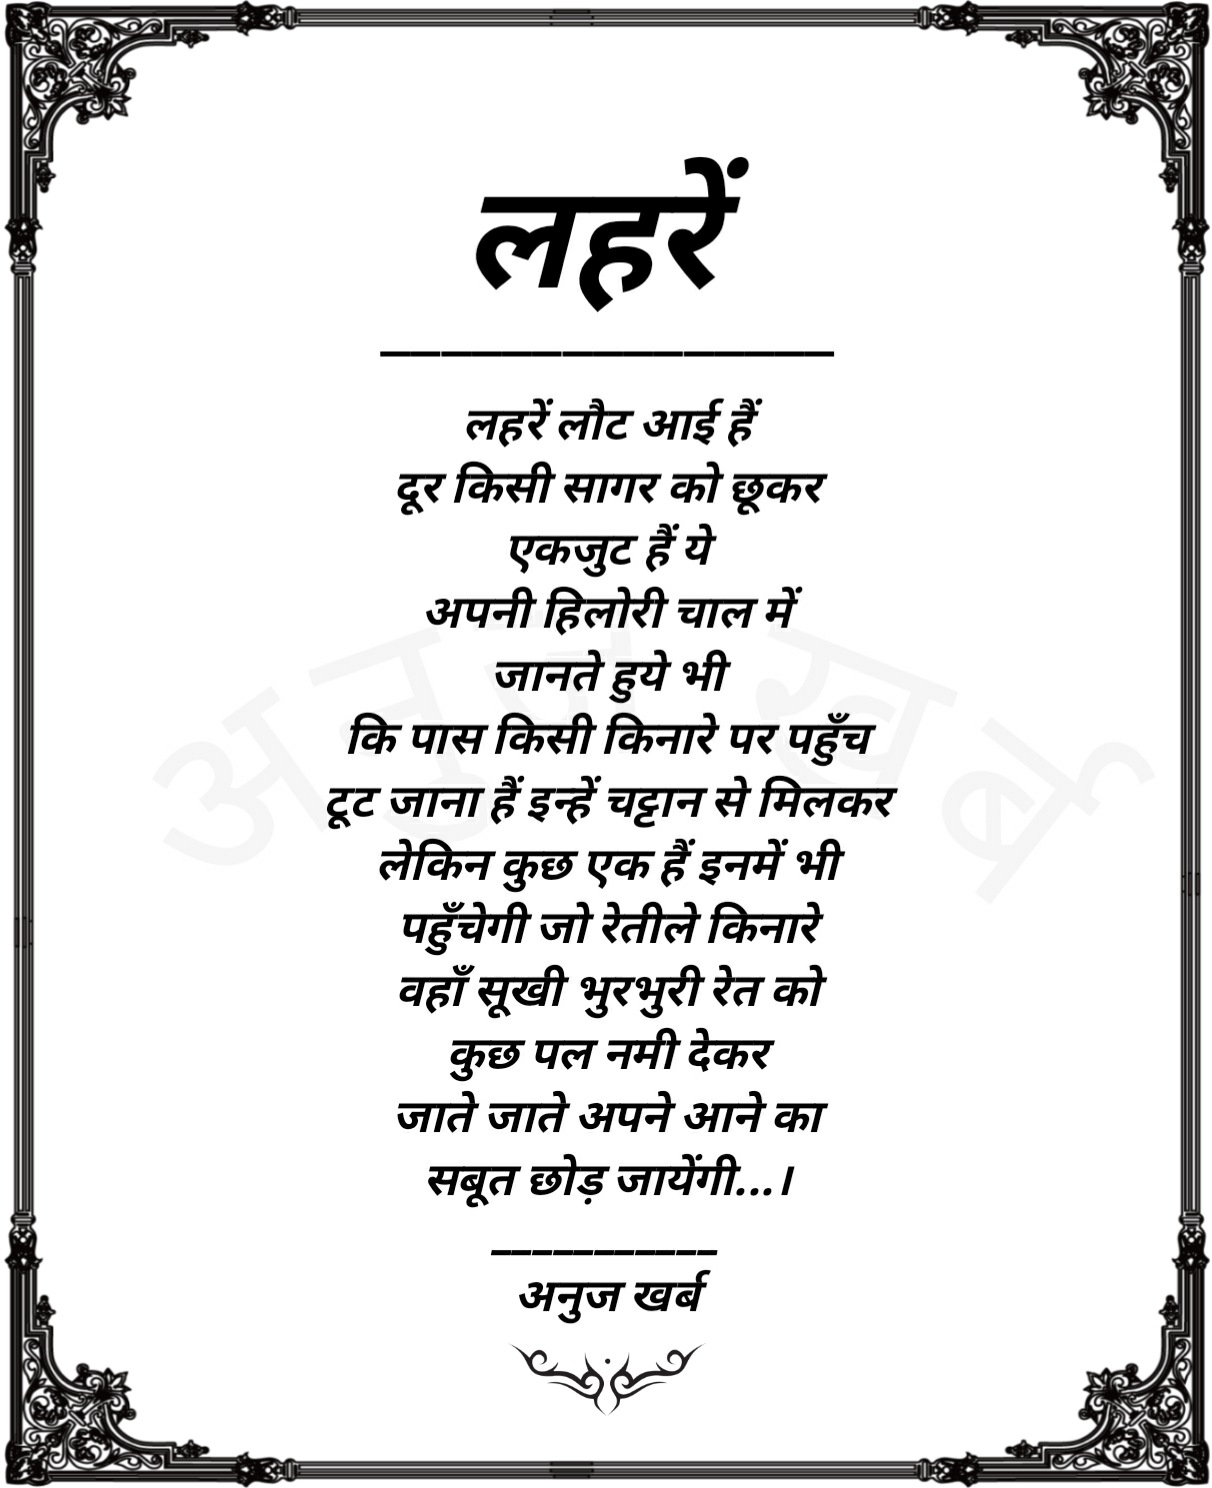 लहरें
_______________
लहरें लौट आई हैं
दूर किसी सागर को छूकर
एकजुट हैं ये
अपनी हिलोरी चाल में
जानते हुये भी
कि पास किसी किनारे पर पहुँच
टूट जाना हैं इन्हें चट्टान से मिलकर
लेकिन कुछ एक हैं इनमें भी
पहुँचेगी जो रेतीले किनारे
वहाँ सूखी भुरभुरी रेत को
कुछ पल नमी देकर
जाते जाते अपने आने का
सबूत छोड़ जायेंगी...।
___________
अनुज खर्ब
अनुज खर्ब